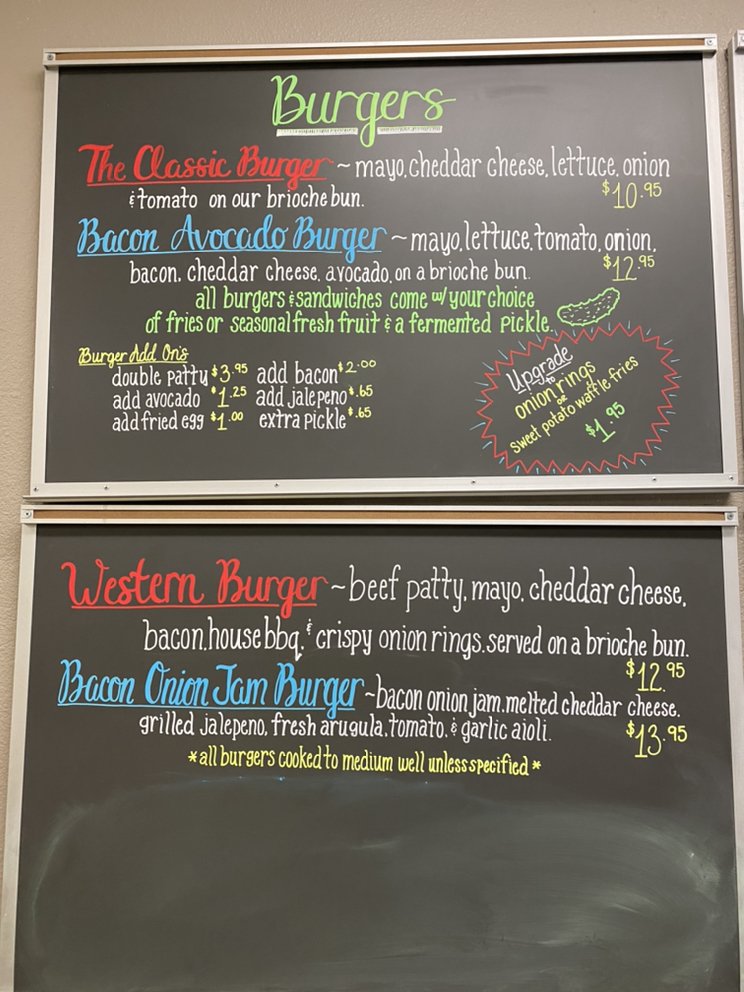 Burgers
The Classic Burger ~ mayo, cheddar cheese, lettuce, onion
& tomato on our brioche bun. $10.95
Bacon Avocado Burger ~ mayo, lettuce, tomato, onion,
bacon, cheddar cheese, avocado, on a brioche bun. $12.95
all burgers & sandwiches come w/ your choice
of fries or seasonal fresh fruit & a fermented pickle.
Burger Add On's
double patty $3.95 add bacon $2.00
add avocado $1.25 add jalepeno $.65
add fried egg $1.00 extra pickle $.65
Upgrade
to
onion rings
or
sweet potato waffle fries
$1.95
Western Burger ~ beef patty, mayo, cheddar cheese,
bacon, house bbq, & crispy onion rings, served on a brioche bun.
$12.95
Bacon Onion Jam Burger ~ bacon onion jam, melted cheddar cheese,
grilled jalepeno, fresh arugula, tomato, & garlic aioli. $13.95
*all burgers cooked to medium well unless specified*